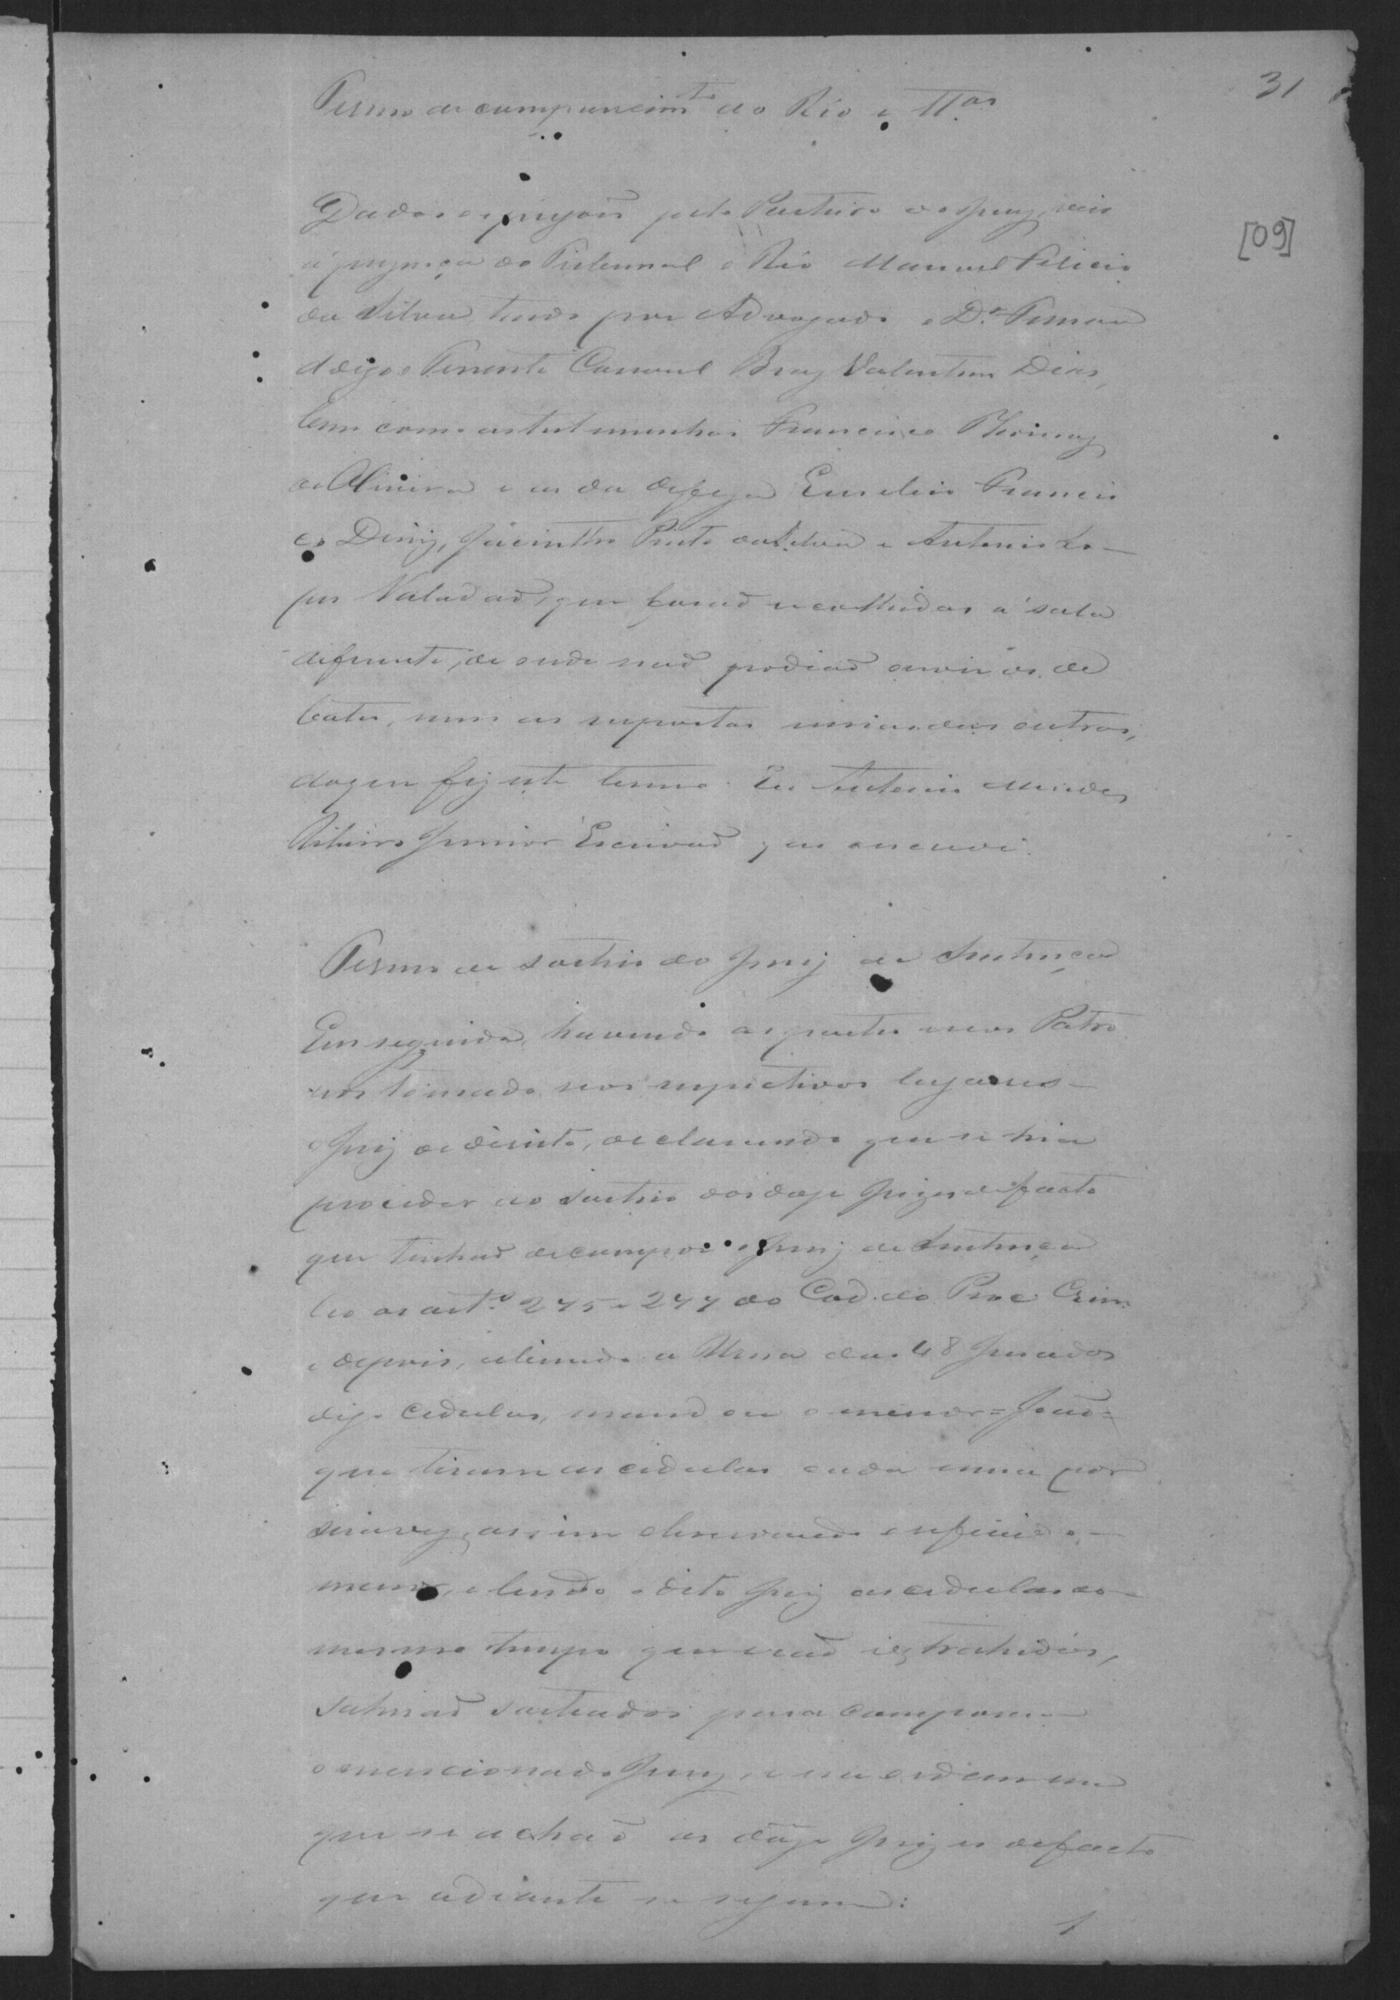 31
Termo de comparecimto do Réo e Ttas
[09]
Dados os pregões pelo Porteiro do Jury, veio
á prezença do Tribunal o Réo Manoel Felicio
da Silva, tendo por Advogado o Dr. Ferman
digo o Tenente Coronel Braz Valentim Dias,
bem como as testemunhas Francisco Thomaz
de Oliveira e as da defeza Francis
co Diniz, Jacintho Preto da Silva e Antonio Lo-
pes Valadaõ, que foraõ recolhidas á sala
differente, de onde naõ podiaõ ouvir os de
bates, nem as respostas umas das outras,
do que fiz este termo. Eu Antonio Mendes
Ribeiro Junior Escrivaõ que escrevi.
Termo de sorteio do Jury de Sentença
Em seguida, havendo as partes e seos Patro
nos tomado seos respectivos lugares-
o Juiz de direito, declarando que se hia
proceder ao sorteio dos doze Juizes de facto
que tinhaõ de compor o Jury de Sentença
leo os arto 275 e 277 do Cod. do Proc Crim.
e depois, abrindo a Urna das 48 Jurados
digo cedulas, mandou o menor = Joaõ =
que tirasse as cedulas cada uma por
sua vez, assim observando o referido-
menor, e lendo o dito Juiz as cedulas ao-
mesmo tempo que eraõ extrahidas,
sahiraõ sorteados para comporem
o mencionado Jury, e na ordem em
que se achaõ os doze Juizes de facto
que adiante se seguem:
1